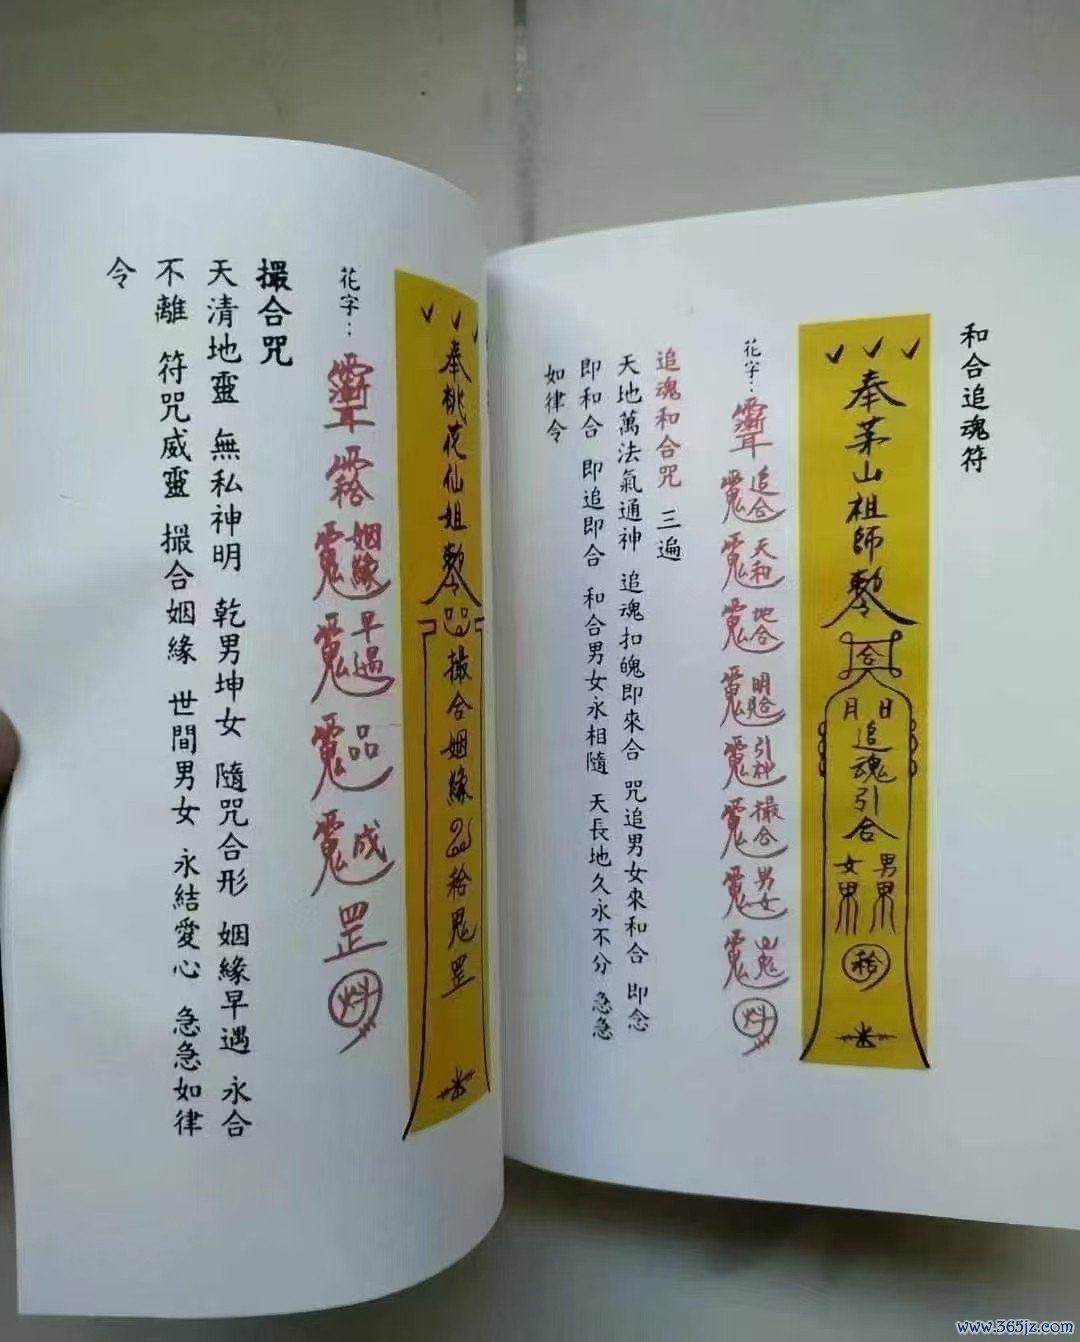 和合追魂符
奉茅山祖師敕令
合
日月
追魂引合
男男
女男
花字：
追合
天和
地合
明
引神
撮合
男女
追魂和合咒 三遍
天地萬法氣通神 追魂扣魄即來合 咒追男女來和合 即念
即和合 即追即合 和合男女永相隨 天長地久永不分 急急
如律令
奉桃花仙姐敕令
撮合姻緣
罡
花字：
姻緣
早遇
成
罡
撮合咒
天清地靈 無私神明 乾男坤女 隨咒合形 姻緣早遇 永合
不離 符咒威靈 撮合姻緣 世間男女 永結愛心 急急如律
令
www.365jz.com